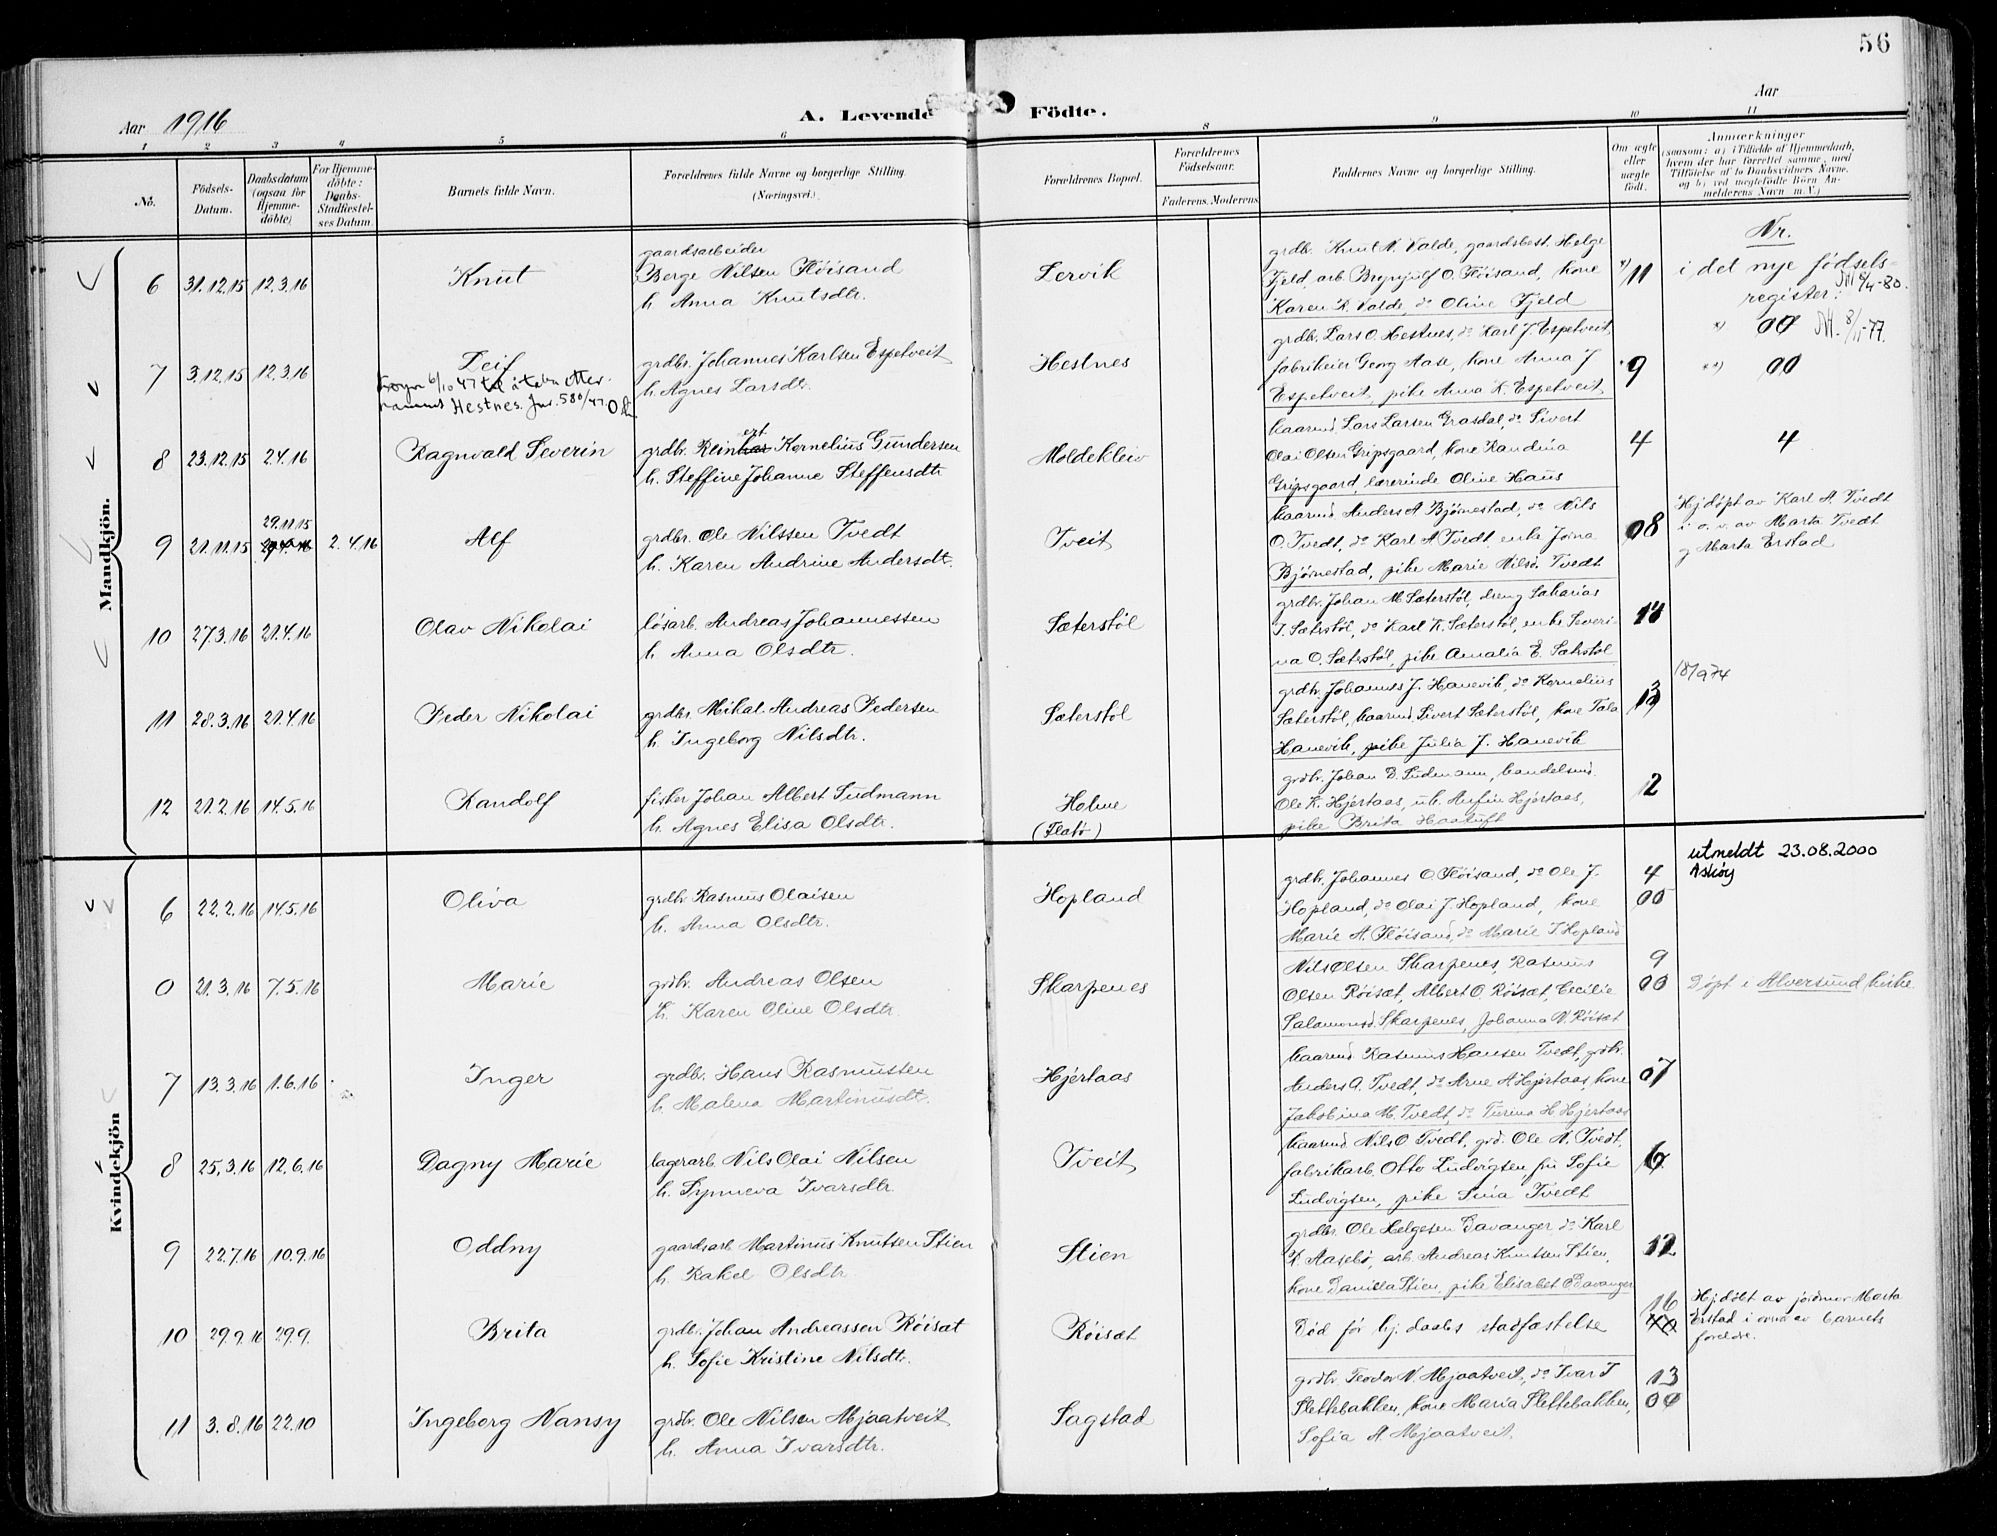 56
Aar 1916
A. Levende Födte.
Aar
1 2 3 4 5 6 8 9 10 11
No.
Födsels-Datum.
Daabsdatum (ogsaa for Hjemme-döbte)
For Hjemme-döbte: Daabs-Stadfæstel-ses Datum
Barnets fulde Navn.
Forældrenes fulde Navne og borgerlige Stilling. (Næringsvei.)
Forældrenes Bopæl.
Forældrenes Födselsaar.
Faderens. Moderens.
Faddernes Navne og borgerlige Stilling.
Om ægte eller uægte födt.
Anmærkninger
(saasom: a) i Tilfælde af Hjemmedaab, hvem der har forrettet samme, med Tilföielse af to Daabsvidners Navne, og b) ved uægtefödte Börn Anmelderens Navn m. V.)
Mandkjön.
6 31.12.15 12.3.16 Knut
gaardsarbeider
Berge Nilsen Fløisand
h. Anna Knutsdtr.
Lervik
grdbr. Knut N. Valde, gaardsbest. Helge
Fjeld, arb. Brynjulf O. Fløisand, kone
Karen K. Valde, do Oline Fjeld
11
Nr.
i det nye fødsels-
register:
7 3.12.15 12.3.16 Leif
navnet Hestnes. Jnr. 580/47
grdbr. Johannes Karlsen Espetveit
h. Agnes Larsdtr.
Hestnes
grdbr. Lars O. Hestnes, do Karl J. Espetveit,
fabrikeier Georg Aase, kone Anna J
Espetveit, pike Anna K. Espetveit
9
00
00
8 23.12.15 2.4.16 Ragnvald Severin
grdbr. Reinhar ert Kornelius Gundersen
h. Steffine Johanne Steffensdtr
Moldekleiv
kaarmd. Lars Larsen Grasdal, do Sivert
Olai Olsen Gripsgaard, kone Randina
Gripsgaard, lærerinde Oline Haus
4
4
9 21.11.15 29.11.15 2.4.16 Alf
grdbr. Ole Nilssen Tvedt
h. Karen Andrine Andersdt.
Tveit
kaarmd Anders A Bjørnestad, do Nils
O. Tvedt, do Karl A Tvedt, enke Jorna
Bjørnestad, pike Marie Nilsd. Tvedt
08
Hj.døpt av Karl A. Tvedt
i o. v. av Marta Tvedt
og Marta Erstad
10 27.3.16 21.4.16 Olav Nikolai
løsarb. Andreas Johannessen
h. Anna Olsdtr.
Sæterstøl
grdbr. Johan M. Sæterstøl, dreng Sakarias
J. Sæterstøl, do Karl K. Sæterstøl, enke Severi-
na O. Sæterstøl, pike Amalia E. Sæterstøl
11 28.3.16 21.4.16 Peder Nikolai
grdbr. Mikal Andreas Pedersen
h. Ingeborg Nilsdtr.
Sæterstøl
grdbr. Johannes J. Hanevik, do Kornelius
Sæterstøl, kaarmd Sivert Sæterstøl, kone Tala
Hanevik, pike Julia J. Hanevik
13
12 21.2.16 14.5.16 Randolf
fisker Johan Albert Sudmann
h. Agnes Elisa Olsdtr.
Holme
(Flatø)
grdbr. Johan D. Sudmann, handelsmd.
Ole K. Hjertaas, uk. Anfin Hjertaas,
pike Brita Haatuft
12
Kvindekjön
6 22.2.16 14.5.16 Oliva
grdbr. Rasmus Olaisen
h. Anna Olsdtr.
Hopland
grdbr. Johannes O. Fløisand, do Ole J.
Hopland, do Olai J. Hopland, kone
Marie A. Fløisand, do Marie T Hopland
4
00
utmeldt 23.08.2000
Askøy
0 21.3.16 7.5.16 Marie
grdbr. Andreas Olsen
h. Karen Oline Olsdtr.
Skarpenes
Nils Olsen Skarpenes, Rasmus
Olsen Røisæt, Albert O. Røisæt, Cecilie
Salamonsd. Skarpenes, Johanna N. Røisæt
9
00
Døpt i Alversund kirke
7 13.3.16 1.6.16 Inger
grdbr. Hans Rasmussen
h. Malena Martinusdt.
Hjertaas
kaarmd. Rasmus Hansen Tvedt, grdbr.
Anders A. Tvedt, do Arne A Hjertaas, kone
Jakobina M. Tvedt, do Turina H Hjertaas
07
8 25.3.16 12.6.16 Dagny Marie
lagerarb. Nils Olai Nilsen
h. Synneva Ivarsdtr.
Tveit
kaarmd. Nils O Tvedt, grd. Ole N. Tvedt,
fabrikarb. Otto Ludvigsen fru Sofie
Ludvigsen, pike Sina Tvedt
6
9 22.7.16 10.9.16 Oddny
gaardsarb. Martinus Knutsen Stien
h. Rakel Olsdtr
Stien
grdbr. Ole Helgesen Davanger do Karl
R. Aasebø, arb. Andreas Knutsen Stien,
kone Danilla Stien, pike Elisabet O Davanger
12
10 29.9.16 29.9. Brita
grdbr. Johan Andreassen Røisæt
h. Sofie Kristine Nilsdtr.
Røisæt
Død før hj. daabs stadfæstelse
16
Hj.døbt av jordmor Marta
Erstad i overv. av barnets
foreldre.
11 3.8.16 22.10 Ingeborg Nansy
grdbr. Ole Nilsen Mjaatveit
h. Anna Ivarsdtr.
Sagstad
grdbr. Teodor N. Mjaatveit, do Ivar T
Slettebakken, kone Maria Slettebakken,
Sofia A. Mjaatveit
13
00